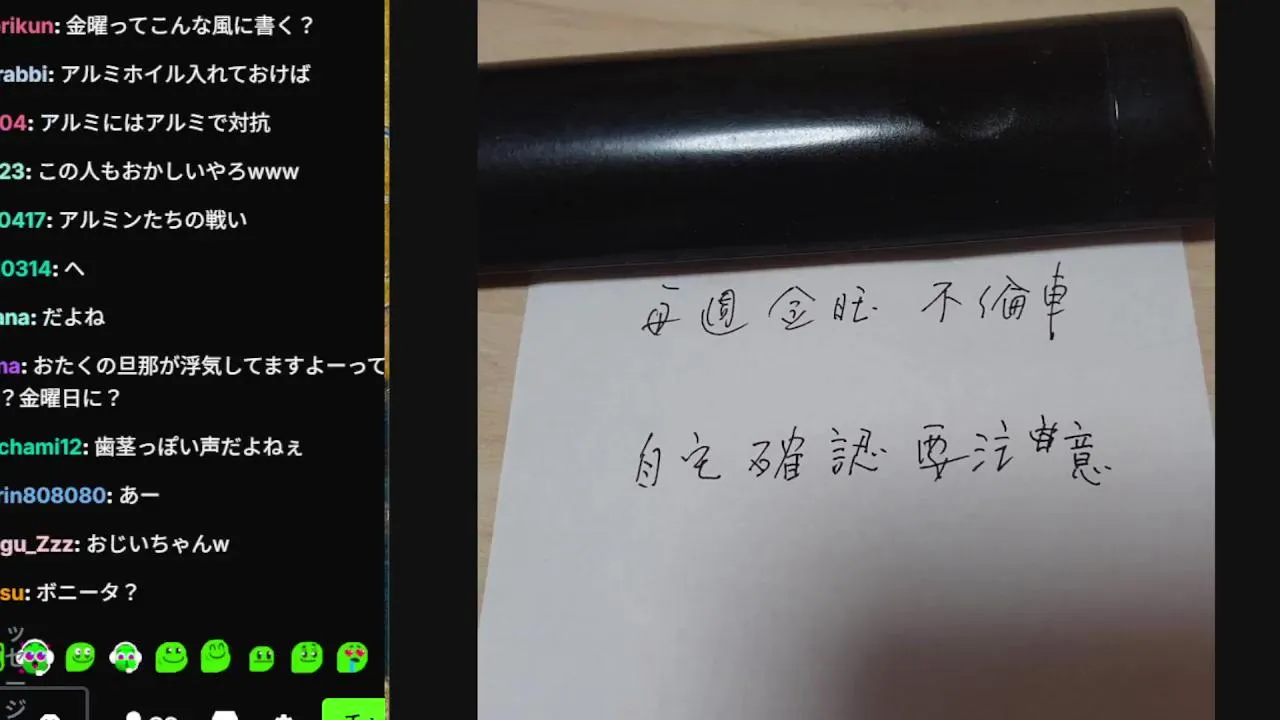 rikun: 金曜ってこんな風に書く？
rabbi: アルミホイル入れておけば
04: アルミにはアルミで対抗
23: この人もおかしいやろwww
0417: アルミンたちの戦い
0314: へ
ana: だよね
na: おたくの旦那が浮気してますよーって
？金曜日に？
chami12: 歯茎っぽい声だよねぇ
rin808080: あー
gu_Zzz: おじいちゃんw
su: ボニータ？
ッセージ
毎週 金旺 不倫車
自宅確認要注意